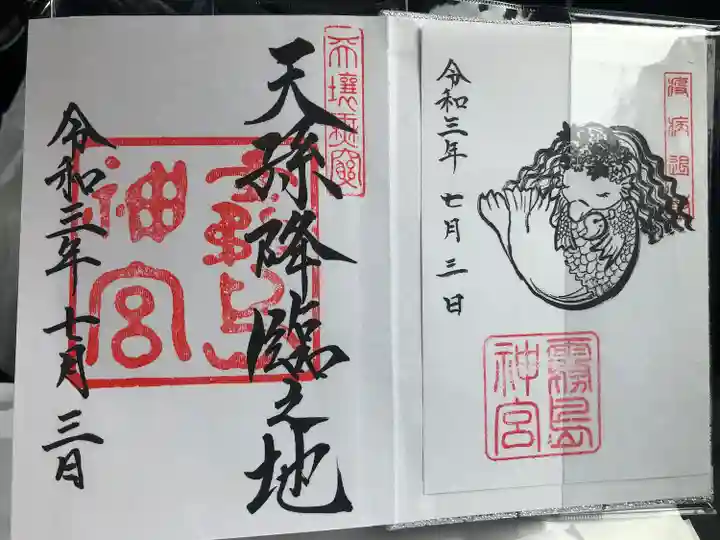 天壌無窮
天孫降臨之地
霧島神宮
令和三年 七月 三日
疫病退
令和三年 七月三日
霧島
神宮